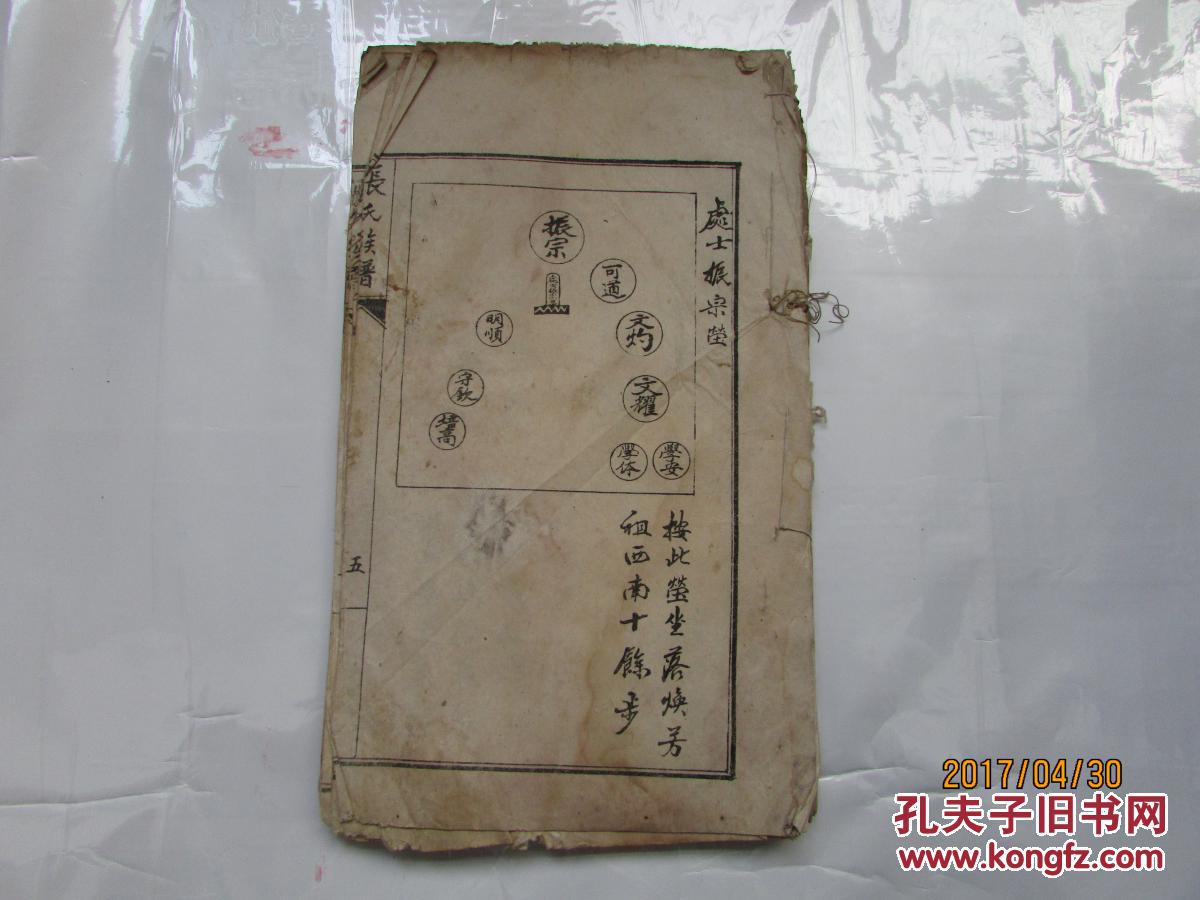 處士振宗塋
振宗
可道
文灼
明順
文耀
守欽
培高
學安
學体
按此塋坐落煥芳
祖西南十餘步
張氏族譜
五
2017/04/30
孔夫子旧书网
www.kongfz.com